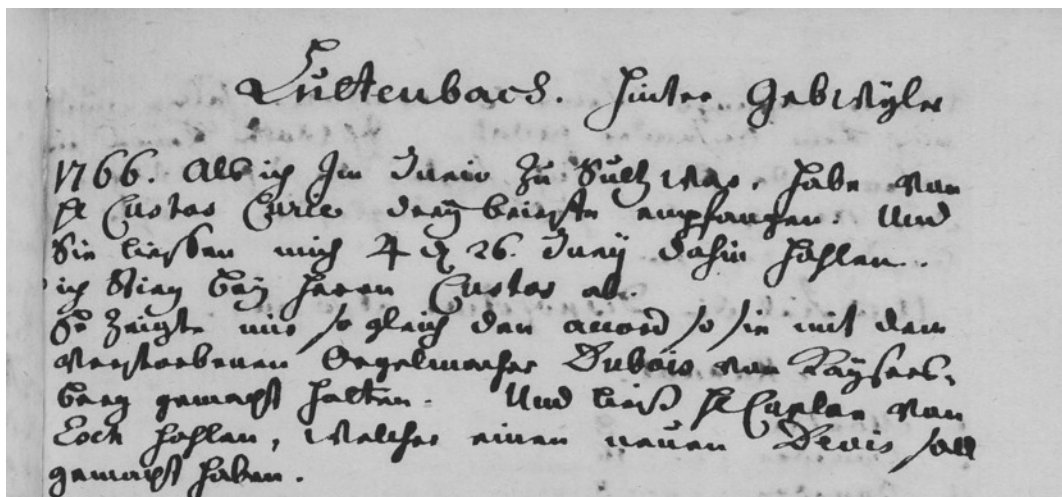 Luttenbach. hinter Gebwyler
1766. Als ich Im Junio zu Sultz war. habe von
hl Custos Curie dreÿ briefe empfangen. Und
Sie liessen mich ♃ d 26. Junÿ dahin hohlen.
ich stieg beÿ Herrn Custos ab.
Er zeigte mir so gleich den accord so sie mit dem
verstorbenen Orgelmacher Dubois von Kaÿsers-
berg gemacht hatten. Und ließ hl Caplan von
hohlen, welcher einen neuen Devis soll
gemacht haben.